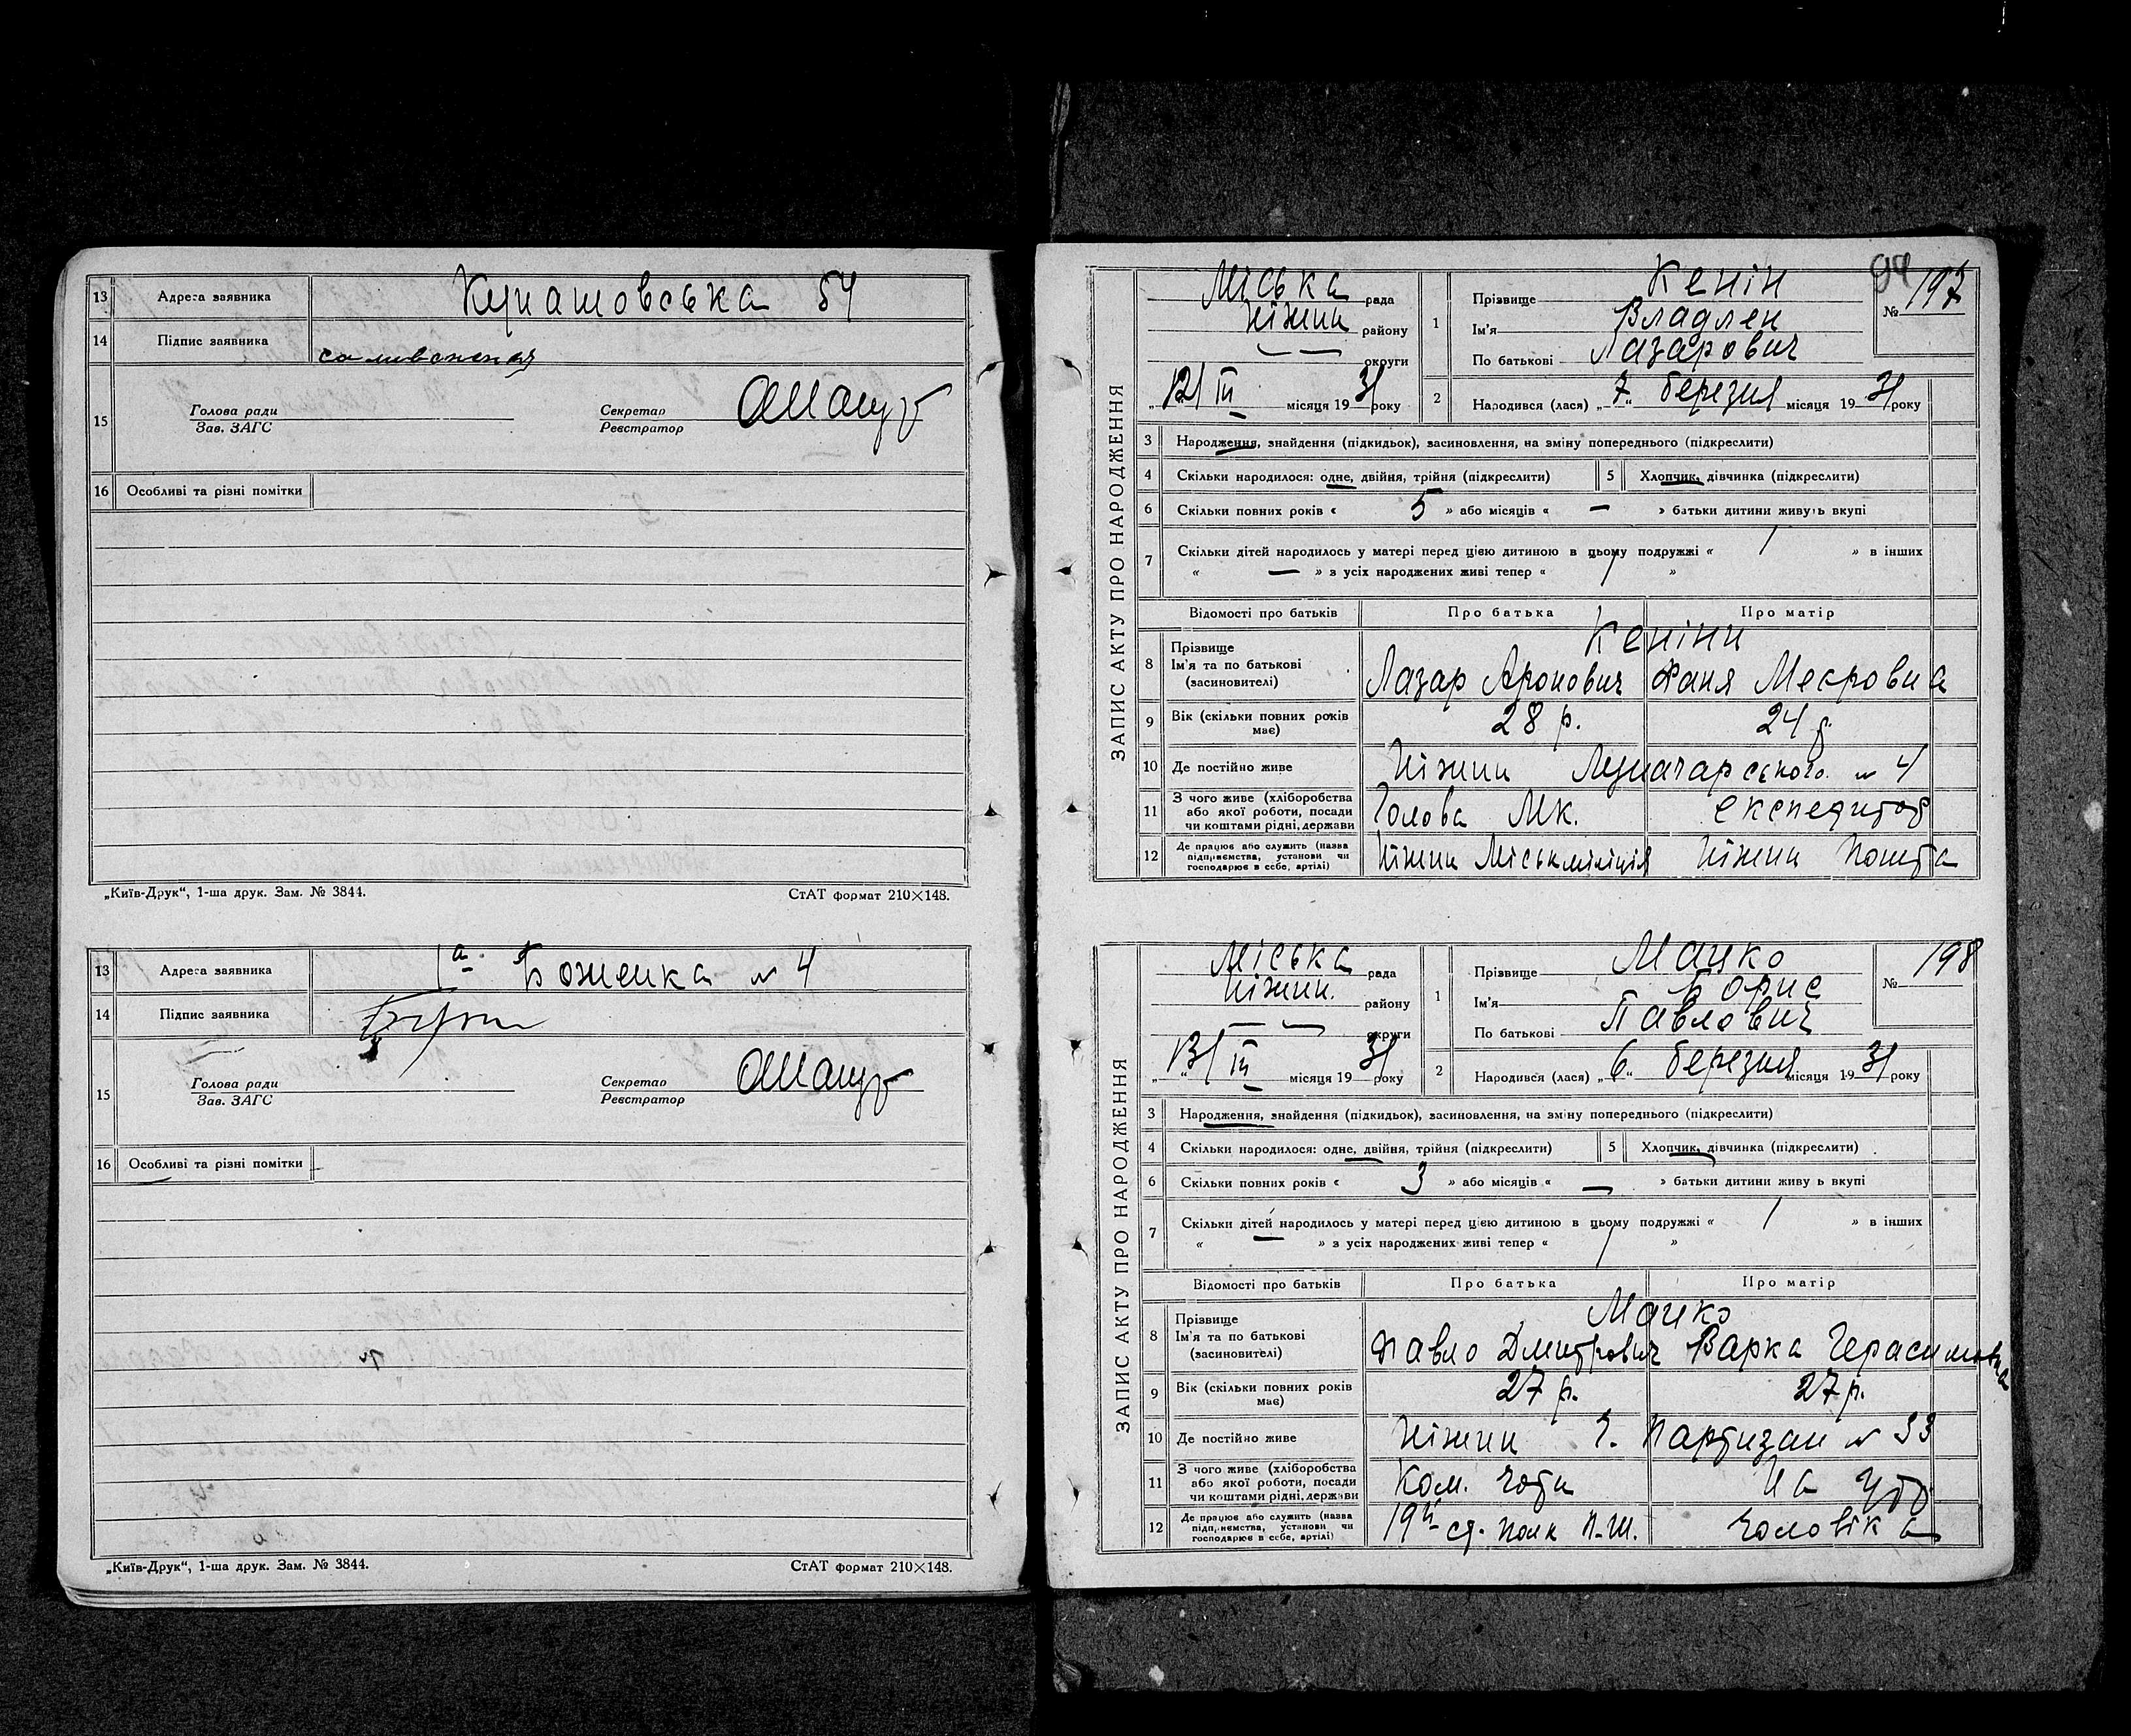 13 Адреса заявника Кушакевська 54
14 Підпис заявника
15 Голова ради
Зав. ЗАГС
Секретар
Реєстратор
16 Особливі та різні помітки
„Київ-Друк“, 1-ша друк. Зам. № 3844. СтАТ формат 210×148.
13 Адреса заявника 1а Боженка № 4
14 Підпис заявника
15 Голова ради
Зав. ЗАГС
Секретар
Реєстратор
16 Особливі та різні помітки
„Київ-Друк“, 1-ша друк. Зам. № 3844. СтАТ формат 210×148.
ЗАПИС АКТУ ПРО НАРОДЖЕННЯ
Міська рада
Ніжин району
— — округи
„12/ III місяця 1931 року
1 Прізвище Кенін
Ім'я Владлен
По батькові Лазарович
№ 197
2 Народився (лася) „7“ березня місяця 1931 року
3 Народження, знайдення (підкидьок), засиновлення, на зміну попереднього (підкреслити)
4 Скільки народилося: одне, двійня, трійня (підкреслити) 5 Хлопчик, дівчинка (підкреслити)
6 Скільки повних років « 5 » або місяців « — » батьки дитини живуть вкупі
7 Скільки дітей народилось у матері перед цією дитиною в цьому подружжі « 1 » в інших
« — » з усіх народжених живі тепер « 1 »
Відомості про батьків Про батька Про матір
8 Прізвище Кеніни
Ім'я та по батькові
(засиновителі) Лазар Аронович Фаня Меєровна
9 Вік (скільки повних років має) 28 р. 24 р.
10 Де постійно живе Ніжин Луначарського № 4
11 З чого живе (хліборобства
або якої роботи, посади
чи коштами рідні, держави Голова МК. експедитор
12 Де працює або служить (назва
підприємства, установи чи
господарює в себе, артілі) Ніжин Міськміліція Ніжин Пошта
ЗАПИС АКТУ ПРО НАРОДЖЕННЯ
Міська рада
Ніжин. району
— — округи
„13/ III місяця 1931 року
1 Прізвище Мацко
Ім'я Борис
По батькові Павлович
№ 198
2 Народився (лася) „6“ березня місяця 1931 року
3 Народження, знайдення (підкидьок), засиновлення, на зміну попереднього (підкреслити)
4 Скільки народилося: одне, двійня, трійня (підкреслити) 5 Хлопчик, дівчинка (підкреслити)
6 Скільки повних років « 3 » або місяців « — » батьки дитини живу ь вкупі
7 Скільки дітей народилось у матері перед цією дитиною в цьому подружжі « 1 » в інших
« — » з усіх народжених живі тепер « 1 »
Відомості про батьків Про батька Про матір
8 Прізвище Мацко
Ім'я та по батькові
(засиновителі) Павло Дмитрович Варка Герасимовна
9 Вік (скільки повних років має) 27 р. 27 р.
10 Де постійно живе Ніжин Ч. Партизан № 33
11 З чого живе (хліборобства
або якої роботи, посади
чи коштами рідні, держави Ком. чоти На утр
12 Де працює або служить (назва
підприємства, установи чи
господарює в себе, артілі) 19й ст. полк П.Ш. чоловіка